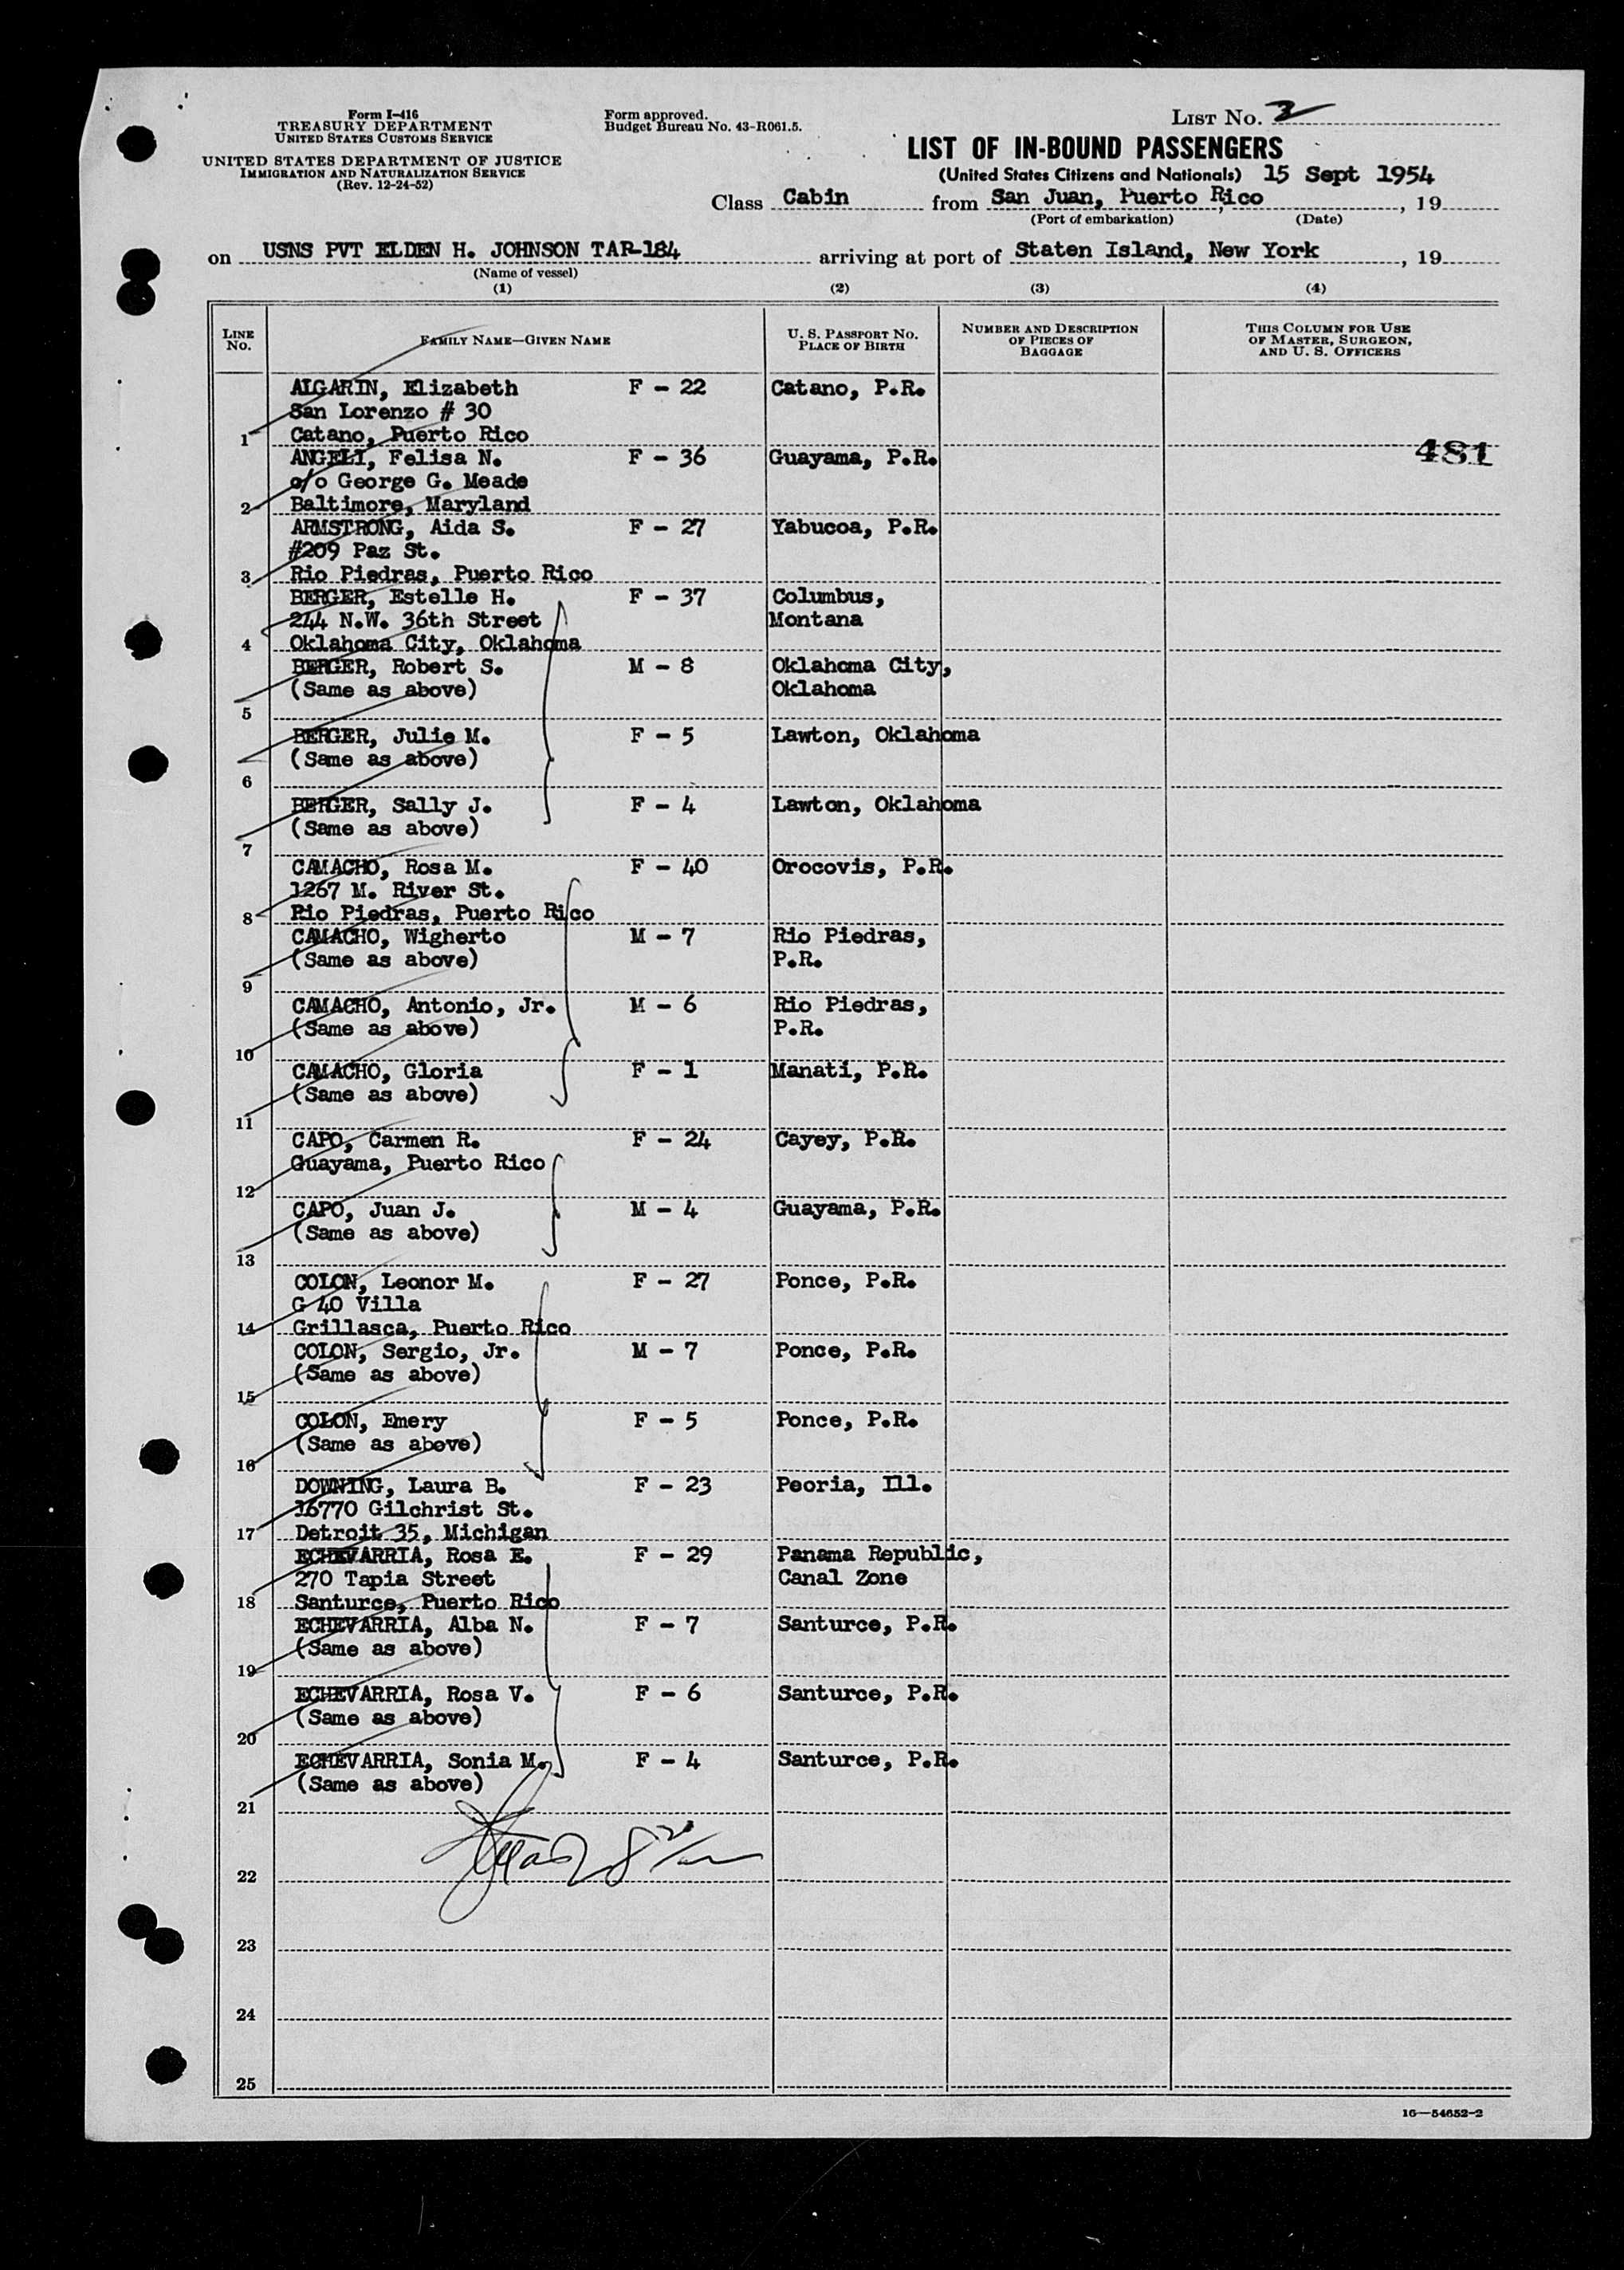 Form I-416
TREASURY DEPARTMENT
UNITED STATES CUSTOMS SERVICE
UNITED STATES DEPARTMENT OF JUSTICE
IMMIGRATION AND NATURALIZATION SERVICE
(Rev. 12-24-52)
Form approved.
Budget Bureau No. 43-R061.5.
LIST No. 2
LIST OF IN-BOUND PASSENGERS
(United States Citizens and Nationals) 15 Sept 1954
Class Cabin from San Juan, Puerto Rico, 19
(Port of embarkation) (Date)
on USNS PVT ELDEN H. JOHNSON TAP-184 arriving at port of Staten Island, New York, 19
(Name of vessel)
(1) (2) (3) (4)
LINE No. FAMILY NAME—GIVEN NAME U. S. PASSPORT NO. PLACE OF BIRTH NUMBER AND DESCRIPTION OF PIECES OF BAGGAGE THIS COLUMN FOR USE OF MASTER, SURGEON, AND U. S. OFFICERS
ALGARIN, Elizabeth F - 22 Catano, P.R.
San Lorenzo # 30
1 Catano, Puerto Rico
481
ANGELI, Felisa N. F - 36 Guayama, P.R.
c/o George G. Meade
2 Baltimore, Maryland
ARMSTRONG, Aida S. F - 27 Yabucoa, P.R.
#209 Paz St.
3 Rio Piedras, Puerto Rico
BERGER, Estelle H. F - 37 Columbus,
244 N.W. 36th Street Montana
4 Oklahoma City, Oklahoma
BERGER, Robert S. M - 8 Oklahoma City,
(Same as above) Oklahoma
5
BERGER, Julie M. F - 5 Lawton, Oklahoma
(Same as above)
6
BERGER, Sally J. F - 4 Lawton, Oklahoma
(Same as above)
7
CAMACHO, Rosa M. F - 40 Orocovis, P.R.
1267 M. River St.
8 Rio Piedras, Puerto Rico
CAMACHO, Wigherto M - 7 Rio Piedras,
(Same as above) P.R.
9
CAMACHO, Antonio, Jr. M - 6 Rio Piedras,
(Same as above) P.R.
10
CAMACHO, Gloria F - 1 Manati, P.R.
(Same as above)
11
CAPO, Carmen R. F - 24 Cayey, P.R.
Guayama, Puerto Rico
12
CAPO, Juan J. M - 4 Guayama, P.R.
(Same as above)
13
COLON, Leonor M. F - 27 Ponce, P.R.
G 40 Villa
14 Grillasca, Puerto Rico
COLON, Sergio, Jr. M - 7 Ponce, P.R.
(Same as above)
15
COLON, Emery F - 5 Ponce, P.R.
(Same as above)
16
DOWNING, Laura B. F - 23 Peoria, Ill.
16770 Gilchrist St.
17 Detroit 35, Michigan
ECHEVARRIA, Rosa E. F - 29 Panama Republic,
270 Tapia Street Canal Zone
18 Santurce, Puerto Rico
ECHEVARRIA, Alba N. F - 7 Santurce, P.R.
(Same as above)
19
ECHEVARRIA, Rosa V. F - 6 Santurce, P.R.
(Same as above)
20
ECHEVARRIA, Sonia M. F - 4 Santurce, P.R.
(Same as above)
21
22
23
24
25
16—54652-2